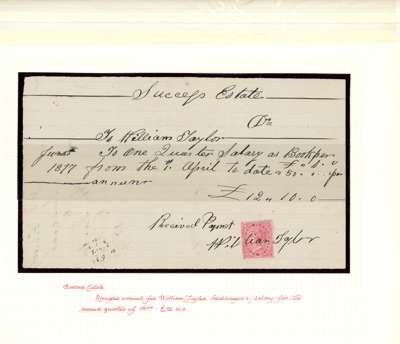 Success Estate
Dr
To William Taylor
June To One Quarter Salary as Bookper
1877 from the 1 April to date @ 50 per
annum
£12 " 10. 0
Received Payment
William Taylor
Success Estate.
Receipted account for William Taylor, bookkeeper's salary for the
second quarter of 1877 - £12.10.0.